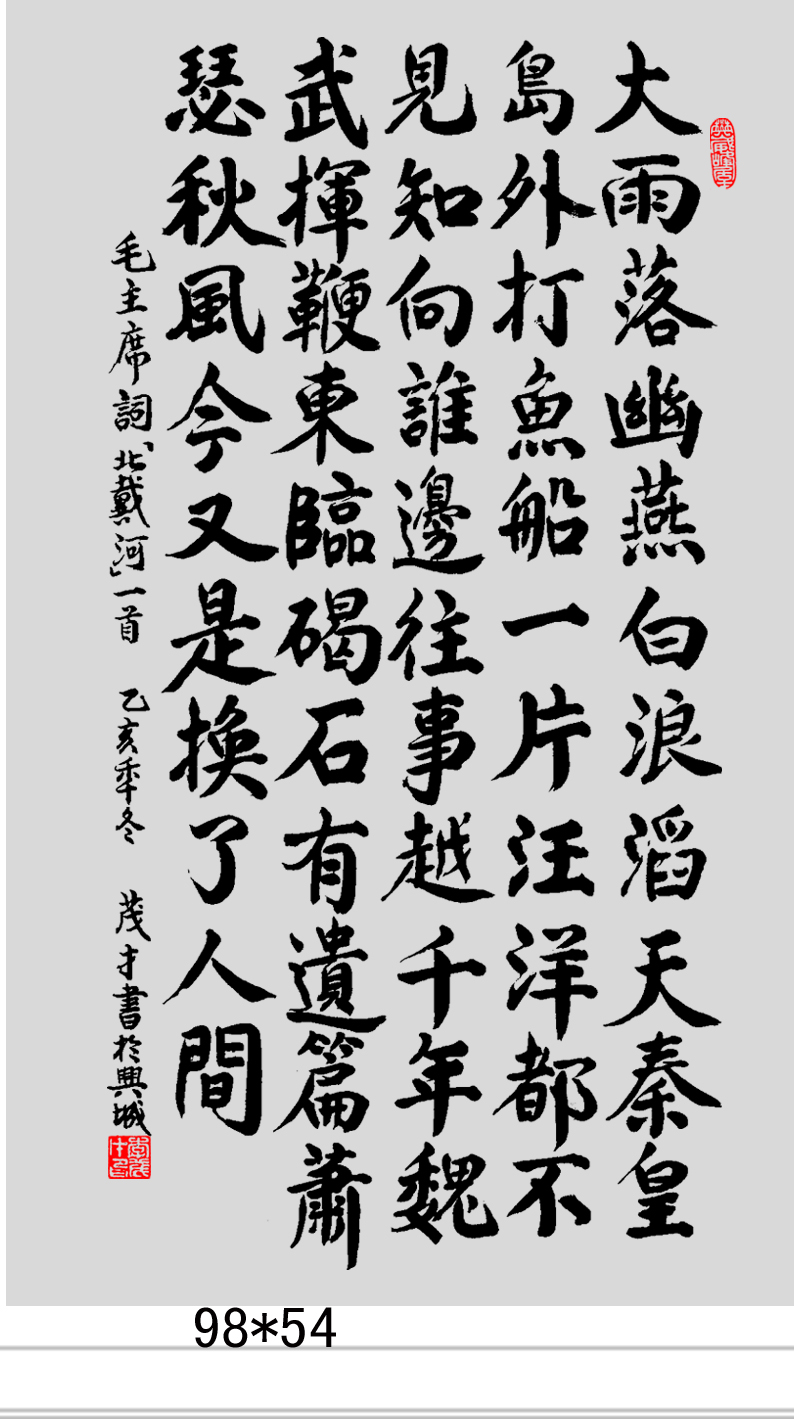 大雨落幽燕白浪滔天秦皇
島外打魚船一片汪洋都不
見知向誰邊往事越千年魏
武揮鞭東臨碣石有遺篇蕭
瑟秋風今又是換了人間
毛主席詞「北戴河」一首 乙亥年冬 茂才書於興城
98*54